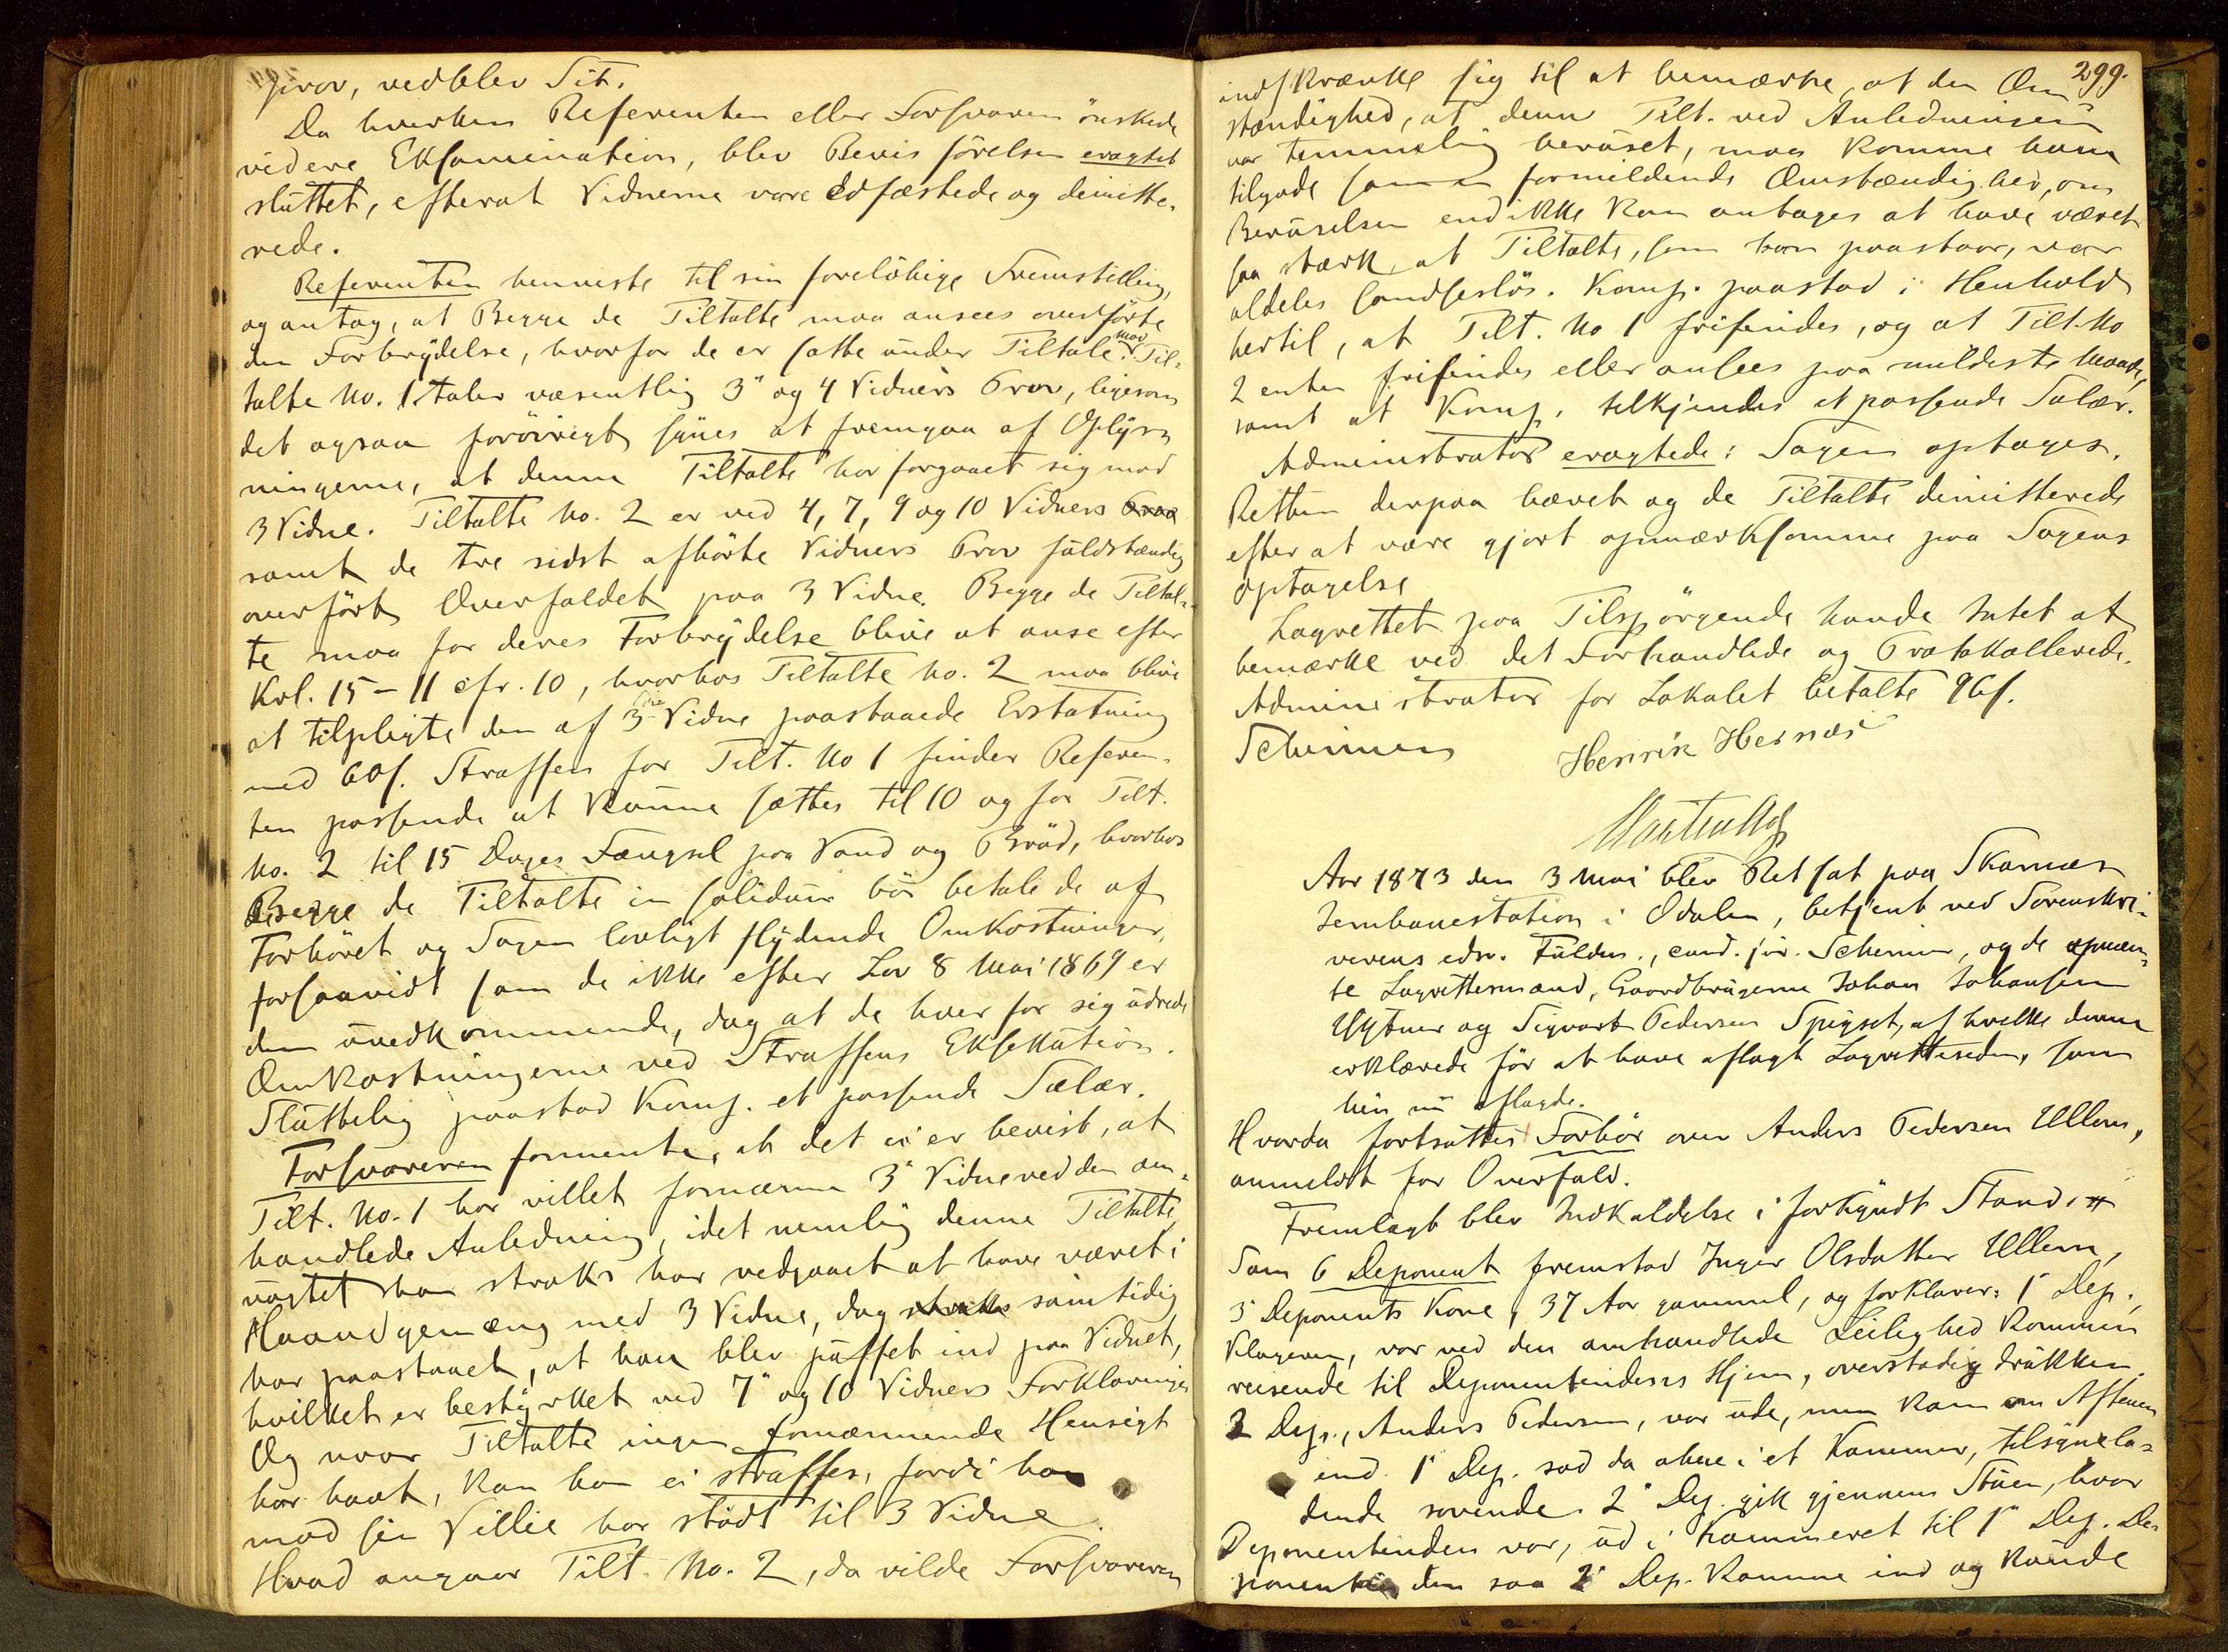 Prov, vedblev Sit.
Da hverken Referenten eller Forsvareren önskede
videre Eksamination, blev Bevisförelsen eragtet
sluttet, efterat Vidnerne vare Edfæstede og dimitte-
rede.
Referenten henviste til sin foreløbige Fremstilling,
og antog, at Begge de Tiltalte maa ansees overförte
den Forbrydelse, hvorfor de er satte under Tiltale. Mod Til-
talte No. 1 taler væsentlig 3" og 4 Vidners Prov, ligesom
det ogsaa forövrigt synes at fremgaa af Oplys-
ningerne, at denne Tiltalte har forgaaet sig mod
3 Vidne. Tiltalte No. 2 er ved 4, 7, 9 og 10 Vidners Prov
samt de tre sidst afhörte Vidners Prov fuldstændig
overfört Overfaldet paa 3 Vidne. Begge de Tiltal-
te maa for deres Forbrydelse blive at anse efter
Krl. 15 – 11 cfr. 10, hvorhos Tiltalte No. 2 maa blive
at tilpligte den af 3die Vidne paastaaede Erstatning
med 60 s. Straffen for Tilt. No 1 finder Referen-
ten passende at kunne sættes til 10 og for Tilt.
No. 2 til 15 Dages Fængsel paa Vand og Bröd, hvorhos
Begge de Tiltalte in solidum bör betale de af
Forhöret og Sagen lovligt flydende Omkostninger,
forsaavidt som de ikke efter Lov 8 Mai 1869 er
dem uvedkommende, dog at de hver for sig udrede
Omkostningerne ved Straffens Eksekution.
Sluttelig paastod Komp. et passende Salær.
Forsvareren formente, at det ei er bevist, at
Tilt. No. 1 har villet fornærme 3" Vidne ved den om-
handlede Anledning, idet nemlig denne Tiltalte,
uagtet han straks har vedgaaet at have været i
Haandgemæng med 3 Vidne, dog straks samtidig
har paastaaet, at han blev puffet ind paa Vidnet,
hvilket er bestyrket ved 7" og 10 Vidners Forklaringer
Og naar Tiltalte ingen fornærmende Hensigt
har havt, kan han ei straffes, fordi han
mod sin Villie har stödt til 3 Vidne.
Hvad angaar Tilt. No. 2, da vilde Forsvareren
299.
indskrænke sig til at bemærke, at den Om-
stændighed, at denne Tilt. ved Anledningen
var temmelig beruset, maa komme ham
tilgode som en formildende Omstændighed, om
Beruselsen end ikke kan antages at have været
saa stærk, at Tiltalte, som han paastaar, var
aldeles sandseslös. Komp. paastod i Henhold
hertil, at Tilt. No 1 frifindes, og at Tilt. No
2 enten frifindes eller ansees paa mildeste Maade,
samt at Komp. tilkjendes et passende Salær.
Administrator eragtede: Sagen optages.
Retten derpaa hævet og de Tiltalte dimitterede
efter at være gjort opmærksomme paa Sagens
Optagelse
Lagrettet paa Tilspörgende havde Intet at
bemærke ved det Forhandlede og Protokollerede.
Administrator for Lokalet betalte 96 s.
Scheimer Henrik Hernæs
Aar 1873 den 3 Mai blev Ret sat paa Skarnæs
Jernbanestation i Odalen, betjent ved Sorenskri-
verens edsv. Fuldm., cand. jur. Scheimer, og de opnævn-
te Lagrettesmænd, Gaardbrugerne Johan Johansen
og Sigvart Pedersen Spigset, af hvilke denne
erklærede för at have aflagt Lagrettesedem, som
hin nu aflagde.
Hvorda fortsattes Forhör over Anders Pedersen Ullern,
anmeldt for Overfald.
Fremlagt blev Indkaldelse i forkyndt Stand.
Som 6 Deponent fremstod Inger Olsdatter Ullern,
3" Deponents Kone, 37 Aar gammel, og forklarer: 1" Dep.,
Klageren, var ved den omhandlede Leilighed kommen
reisende til Deponentindens Hjem, overstadig drukken.
2 Dep., Anders Pedersen, var ude, men kom om Aftenen
ind. 1" Dep. sad da alene i et Kammer, tilsynela-
dende sovende. 2" Dep. gik gjennem Stuen, hvor
Deponentinden var, ud i Kammeret til 1" Dep. De-
ponentinden saa 2" Dep. komme ind og kunde